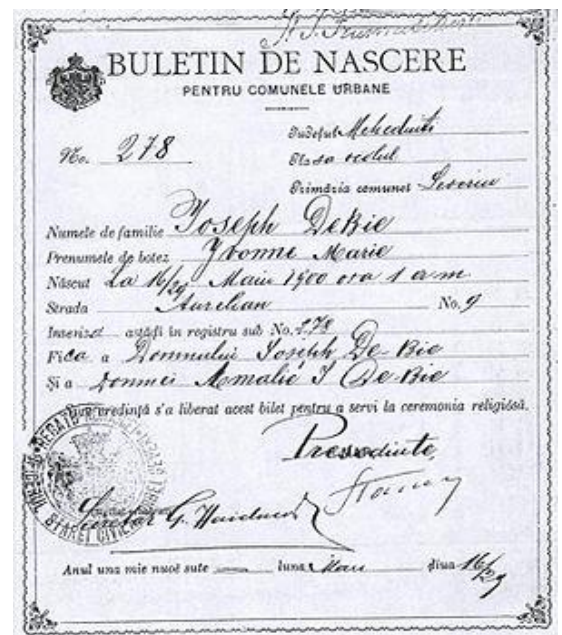 BULETIN DE NASCERE
PENTRU COMUNELE URBANE
No. 278
Judeful Mehedinti
Plasa ocolul
Primăria comunei Severin
Numele de familie Joseph DeBie
Prenumele de botez Yvonne Marie
Născut La 16/29 Maiu 1900 ora 1 a m
Strada Aurelian No. 9
Inscris astădi în registru sub No. 278
Fica a Domnului Joseph De-Bie
Și a Domnei Amalie J De-Bie
credință s'a liberat acest bilet pentru a servi la ceremonia religiósă.
Presedinte,
Secretar G.
Anul una mie nuoĕ sute luna Mau diua 16/29